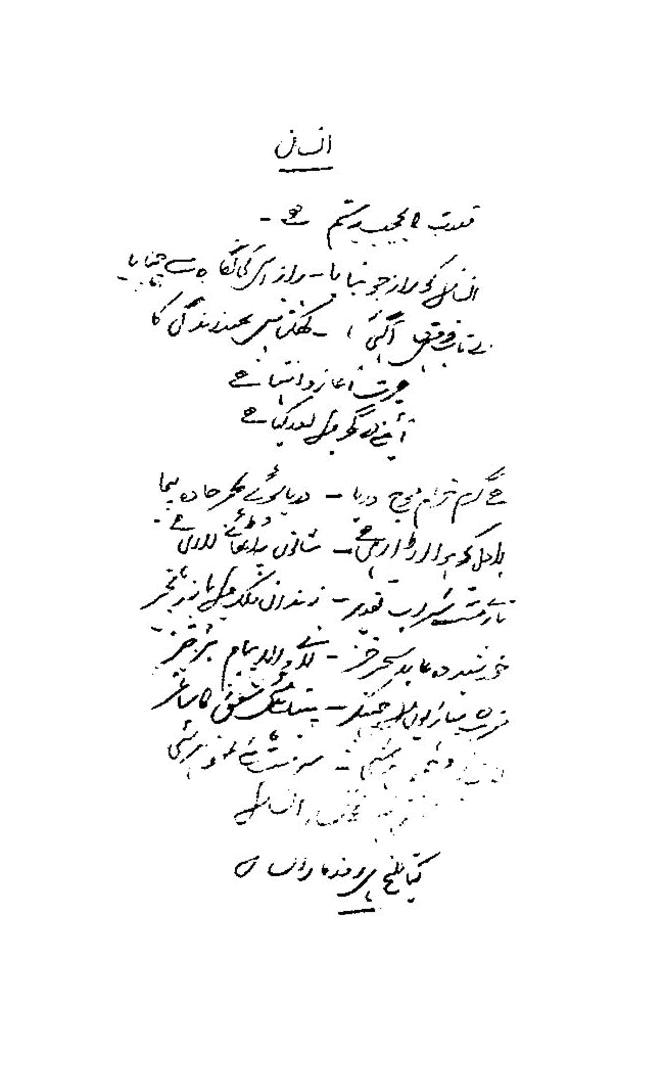 انسان
قدرت کا عجیب یہ ستم ہے -
انسان کو راز جو بنایا - راز اس کی نگاہ سے چھپایا
بے تاب ہے ذوق آگہی کا - کھلتا نہیں بھید زندگی کا
حیرت آغاز و انتہا ہے
آئینے کے گھر میں اور کیا ہے
ہے گرم خرام موج دریا - دریا سوئے بحر جادہ پیما
بادل کو ہوا اڑا رہی ہے - شانوں پہ اٹھائے لا رہی ہے
تارے مست شراب تقدیر - زندان فلک میں پا بہ زنجیر
خورشید وہ عابد سحر خیز - لانے والا پیام برخیز
مغرب کی پہاڑیوں میں چھپ کر - پیتا ہے مے شفق کا ساغر
وجود ہر شے - سرمست مے نمود ہر شے
انساں
کیا تلخ ہے روزگار انساں